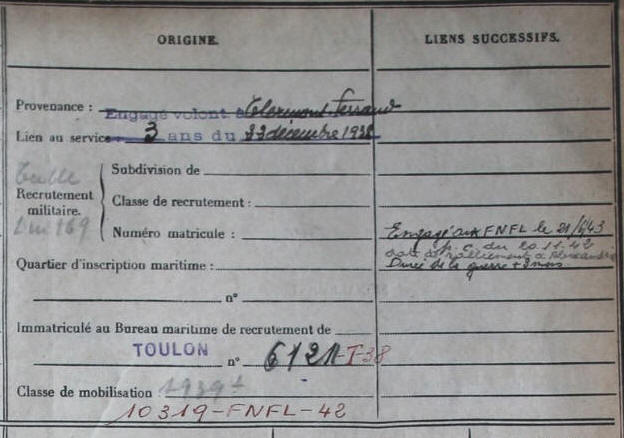 ORIGINE.
LIENS SUCCESSIFS.
Provenance : Engagé volont à Clermont-Ferrand
Lien au service 3 ans du 22 décembre 1938
Tulle
Recrutement
militaire.
Subdivision de
Classe de recrutement :
Numéro matricule :
Engagé aux FNFL le 21/6/43
p. c. du 20.11.42
date de ralliement à Alexandrie
Durée de la guerre + 3 mois
Quartier d'inscription maritime :
n°
Immatriculé au Bureau maritime de recrutement de
TOULON n° 6121-T-38
Classe de mobilisation 1939
10319-FNFL-42